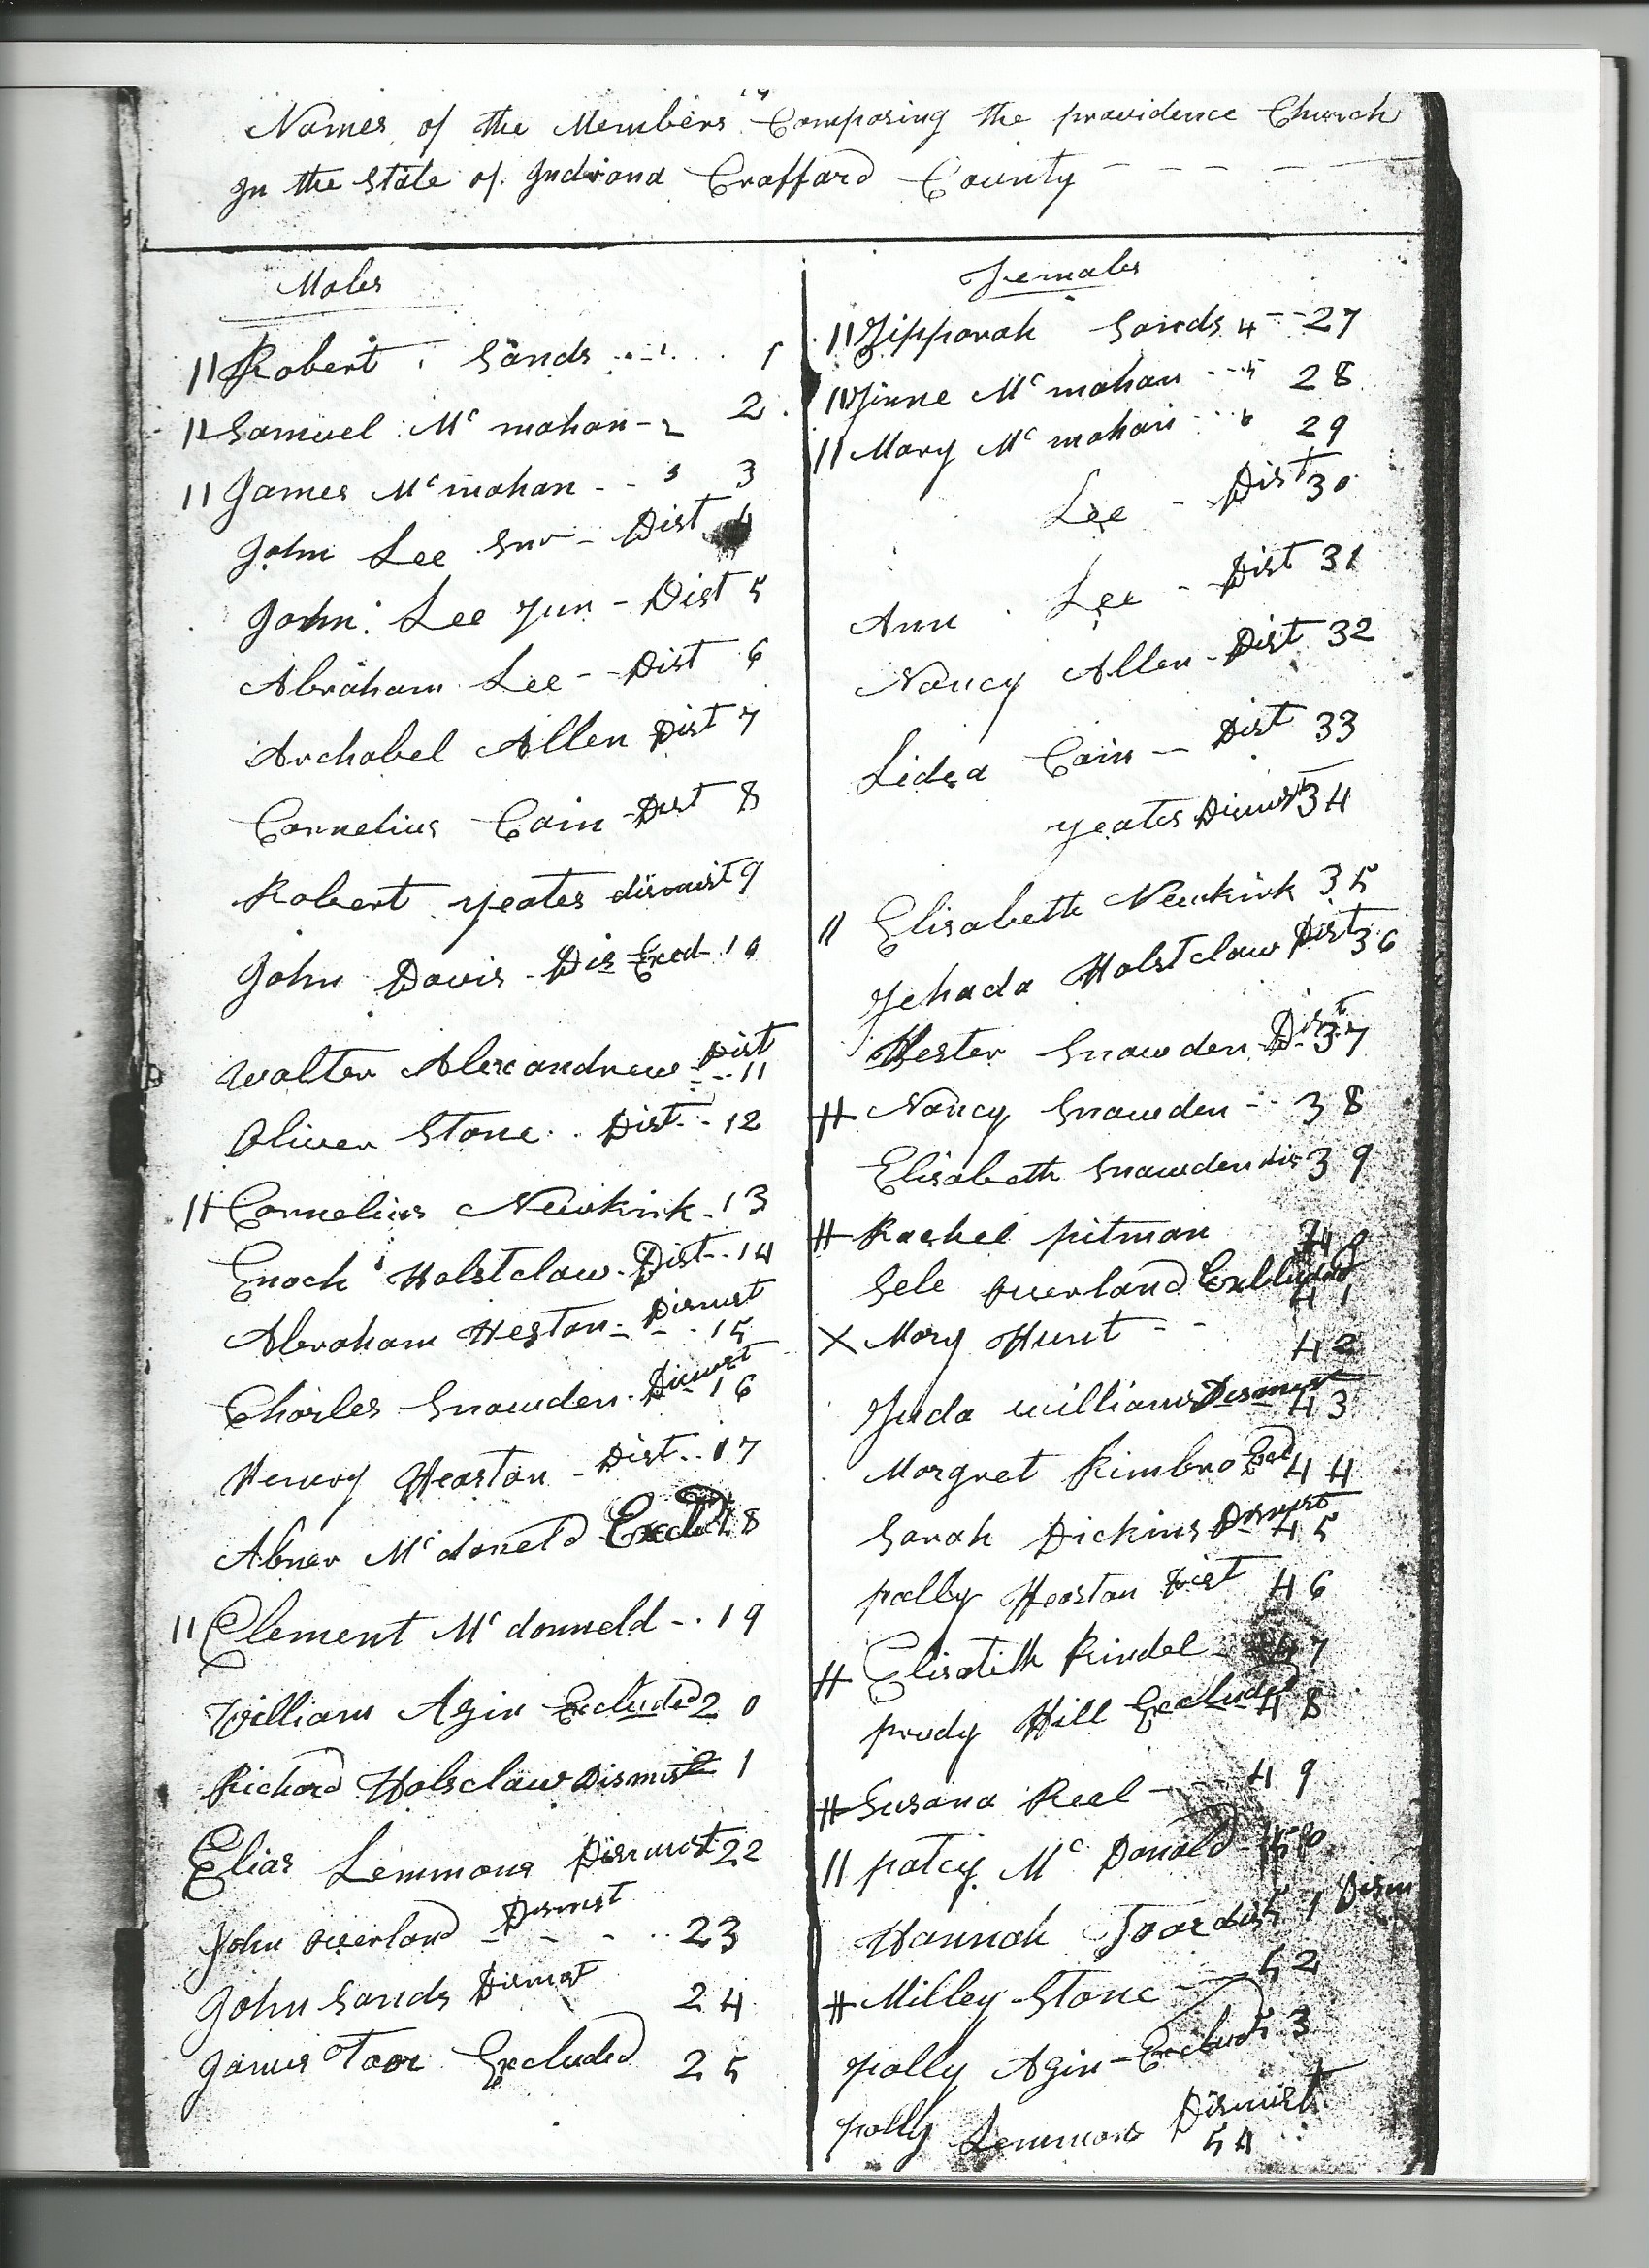 Names of the Members Composing the providence Church
In the State of Indiana Craffard County
Males
|| Robert Sands 1
|| Samuel Mc mahan - 2 2
|| James Mc mahan - - 3 3
John Lee Snr - Dist 4
John Lee Jun - Dist 5
Abraham Lee - - Dist 6
Archabel Allen Dist 7
Cornelius Cain - Dist 8
Robert yeates dismist 9
John Davis - Dis Exed 10
Walter Alexandrew Dist 11
Oliver Stone Dist 12
|| Cornelius Newkirk - 13
Enoch Holstclaw Dist 14
Abraham Heston Dismist 15
Charles Snowden - Dismist 16
Henry Heaston - Dist 17
Abner Mc donald Excld 18
|| Clement Mc donneld - 19
William Agin Excluded 20
Richard Holsclaw Dismist 21
Elias Lemmons Dismist 22
John overland Dismist 23
John Sands Dismist 24
James Toor Excluded 25
Females
|| Zipporah Sands 4 - - 27
|| Jinne Mc mahan - - 5 28
|| Mary Mc mahan 6 29
Lee - Dist 30
Ann Lee - Dist 31
Nancy Allen - Dist 32
Lidea Cain - Dist 33
yeates Dismist 34
|| Elisabeth Newkirk 35
Jehada Holstclaw Dist 36
Hester Snowden Dist 37
# Nancy Snowden 38
Elisabeth Snowden dis 39
# Rachel pitman 40
Sele overland Excluded 41
X Mary Hunt - - 42
Juda williams Dismist 43
Margret Kimbro Excd 44
Sarah Dickins Dismist 45
polly Heaston Dist 46
# Elisabeth Rindel 47
prudy Hill Excluded 48
# Susana Reel - 49
|| patcy Mc Donald 50
Hannah Toor dis 51 Dism
# Milley Stone 52
polly Agin - Exclud 53
polly Lemmons Dismist 54